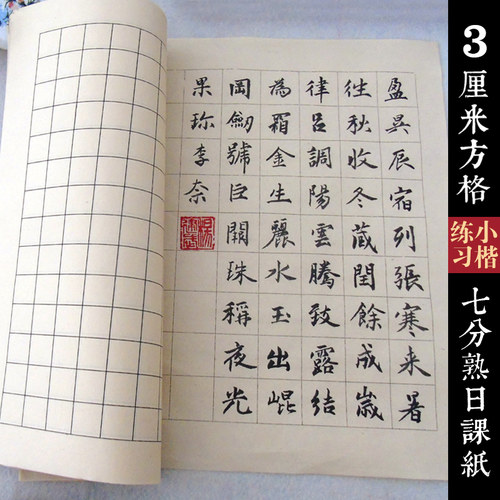 盈昃辰宿列張寒来暑
往秋收冬蔵閏餘成歲
律吕調陽雲騰致露結
為霜金生麗水玉出崐
岡劒號巨闕珠稱夜光
果珎李奈
3厘米方格
小楷
练习
七分熟日課紙